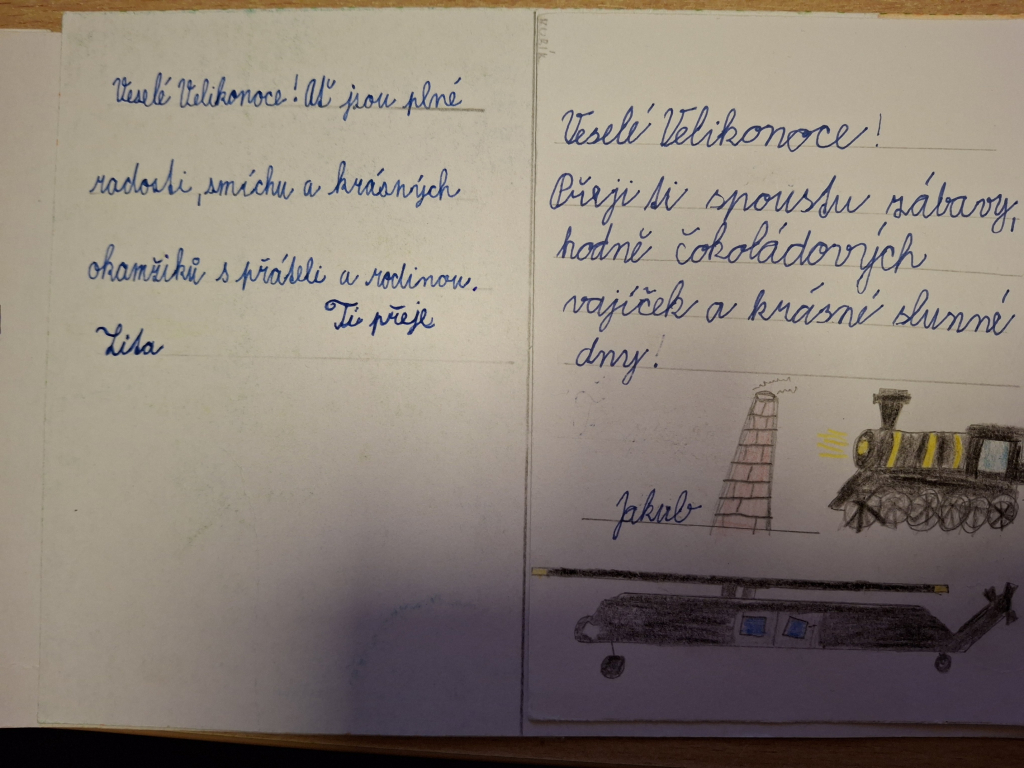 Veselé Velikonoce! Ať jsou plné
radosti, smíchu a krásných
okamžiků s přáteli a rodinou.
Ti přeje
Zita
Veselé Velikonoce!
Přeji ti spoustu zábavy,
hodně čokoládových
vajíček a krásné slunné
dny!
Jakub